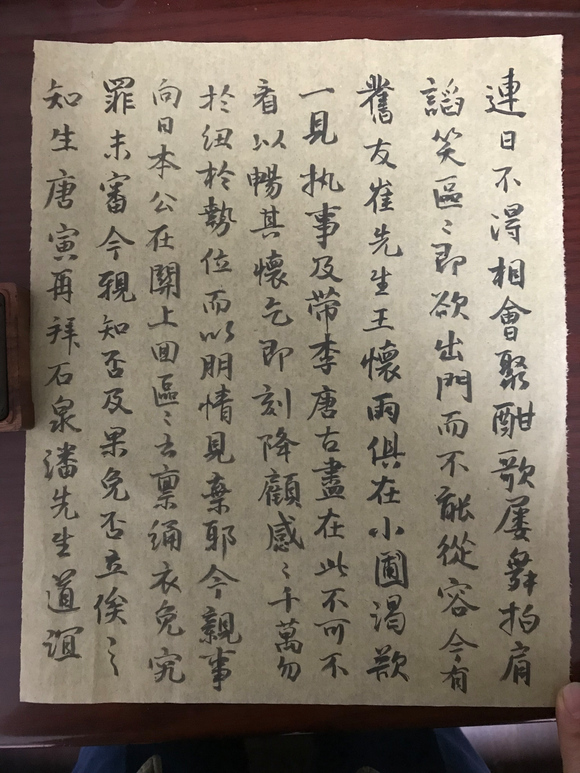 連日不得相會聚酣歌屢舞拍肩
謟笑區〻即欲出門而不能從容今有
舊友崔先生王懷雨俱在小圃渴欲
一見执事及带李唐古畫在此不可不
看以暢其懷乞即刻降顧感〻千萬勿
於纽於勢位而以朋情見棄耶今親事
向日本公在關上回區〻去禀通衣免究
罪未審今親知否及果免否立俟〻
知生唐寅再拜石泉潘先生道誼